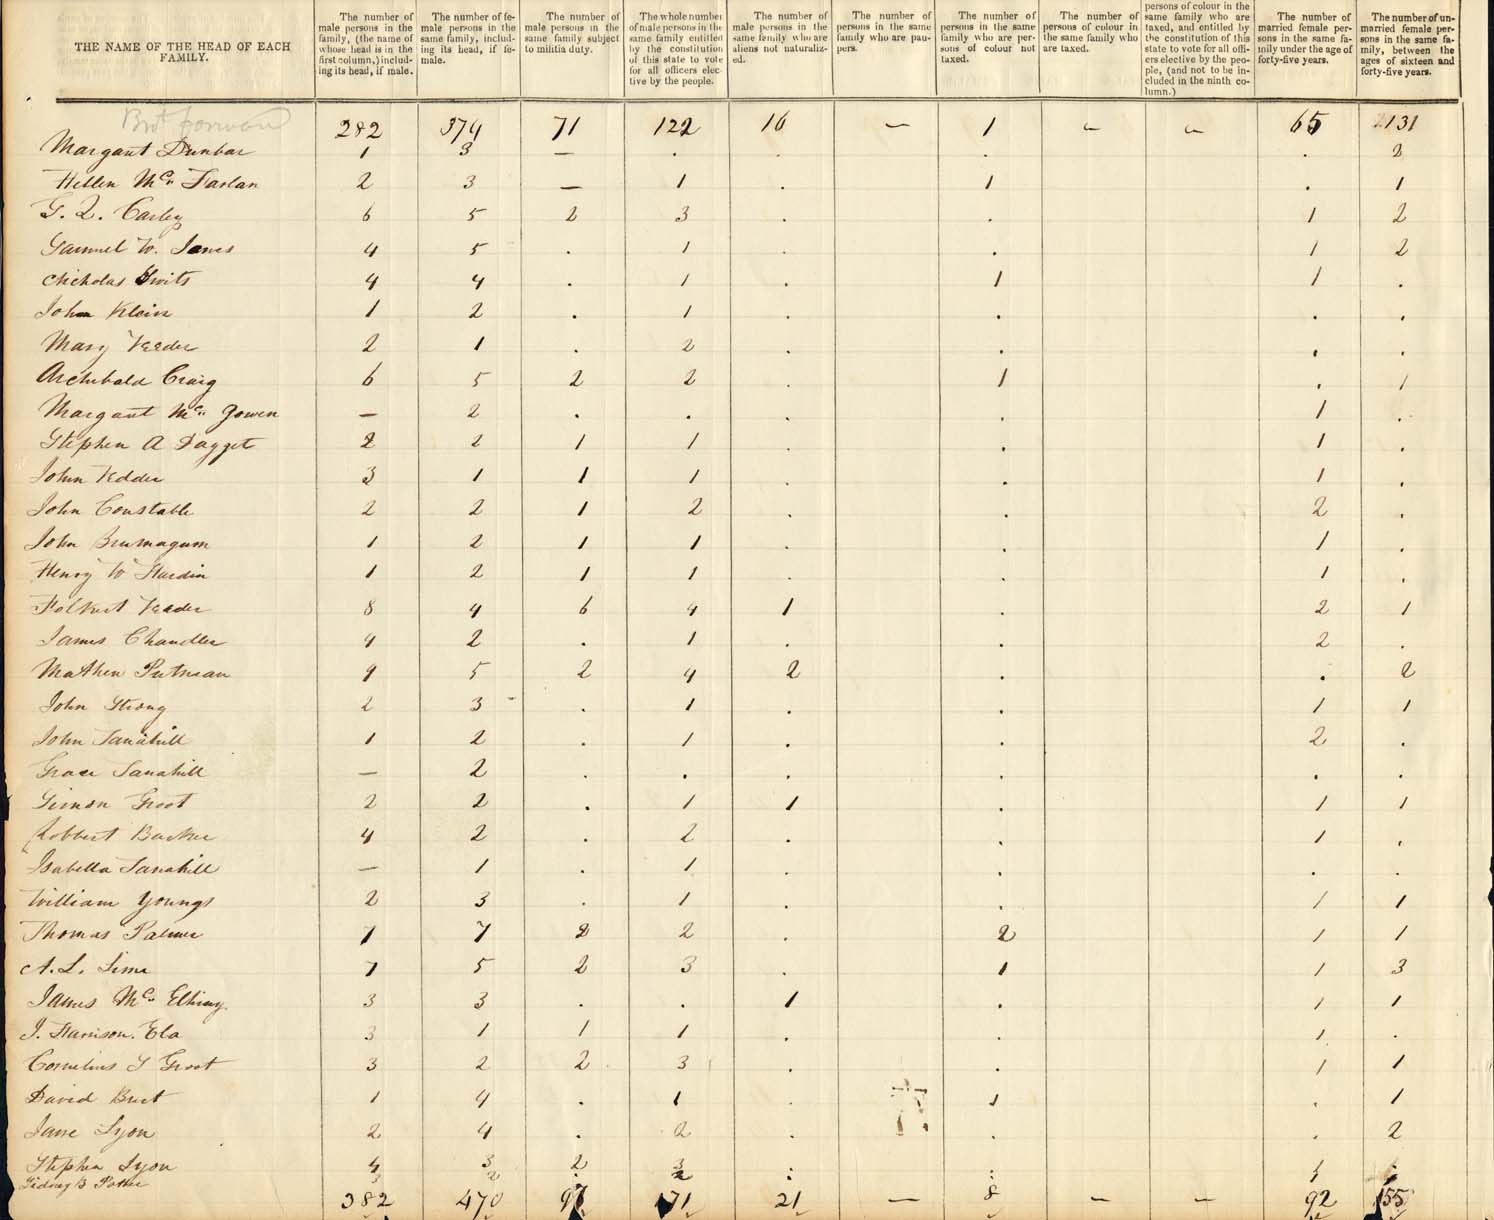 THE NAME OF THE HEAD OF EACH FAMILY. | The number of male persons in the family, (the name of whose head is in the first column,) including its head, if male. | The number of female persons in the same family, including its head, if female. | The number of male persons in the same family subject to militia duty. | The whole number of male persons in the same family entitled by the constitution of this state to vote for all officers elective by the people. | The number of male persons in the same family who are aliens not naturalized. | The number of persons in the same family who are paupers. | The number of persons in the same family who are persons of colour not taxed. | The number of persons of colour in the same family who are taxed. | persons of colour in the same family who are taxed, and entitled by the constitution of this state to vote for all officers elective by the people, (and not to be included in the ninth column.) | The number of married female persons in the same family under the age of forty-five years. | The number of unmarried female persons in the same family, between the ages of sixteen and forty-five years.
Brot forward 282 374 71 122 16 – 1 – – 65 131
Margaret Dunbar 1 3 – . . . . 2
Hellen Mc Farlan 2 3 – 1 . 1 . 1
G. Q. Carley 6 5 2 3 . . 1 2
Samuel W. Jones 4 5 . 1 . . 1 2
Nicholas Swits 4 4 . 1 . 1 1 .
John Klein 1 2 . 1 . . . .
Mary Veeder 2 1 . 2 . . . .
Archibald Craig 6 5 2 2 . 1 . 1
Margaret Mc Gowen – 2 . . . . 1 .
Stephen A Dagget 2 2 1 1 . . 1 .
John Vedder 3 1 1 1 . . 1 .
John Constable 2 2 1 2 . . 2 .
John Brumagum 1 2 1 1 . . 1 .
Henry W Hardin 1 2 1 1 . . 1 .
Folkert Veeder 8 4 6 4 1 . 2 1
James Chandler 4 2 . 1 . . 2 .
Mathew Putman 9 5 2 4 2 . . 2
John Strong 2 3 . 1 . . 1 1
John Tanahill 1 2 . 1 . . 2 .
Grace Tanahill – 2 . . . . . .
Simon Groot 2 2 . 1 1 . 1 1
Robbert Barker 4 2 . 2 . . 1 .
Isabella Tanahill – 1 . 1 . . . .
William Youngs 2 3 . 1 . . 1 1
Thomas Palmer 7 7 2 2 . 2 1 1
A. L. 7 5 2 3 . 1 1 3
James Mc 3 3 . . 1 . 1 1
J. Harrison. Ela 3 1 1 1 . . 1 .
Cornelius S Groot 3 2 2 3 . . 1 1
David Burt 1 4 . 1 . 1 . 1
Jane Lyon 2 4 . 2 . . . 2
Stephen Lyon 4 3 2 3 . . 1 .
Sidney B Potter 3 2 . 2 . . 1 .
382 470 97 171 21 – 8 – – 92 155